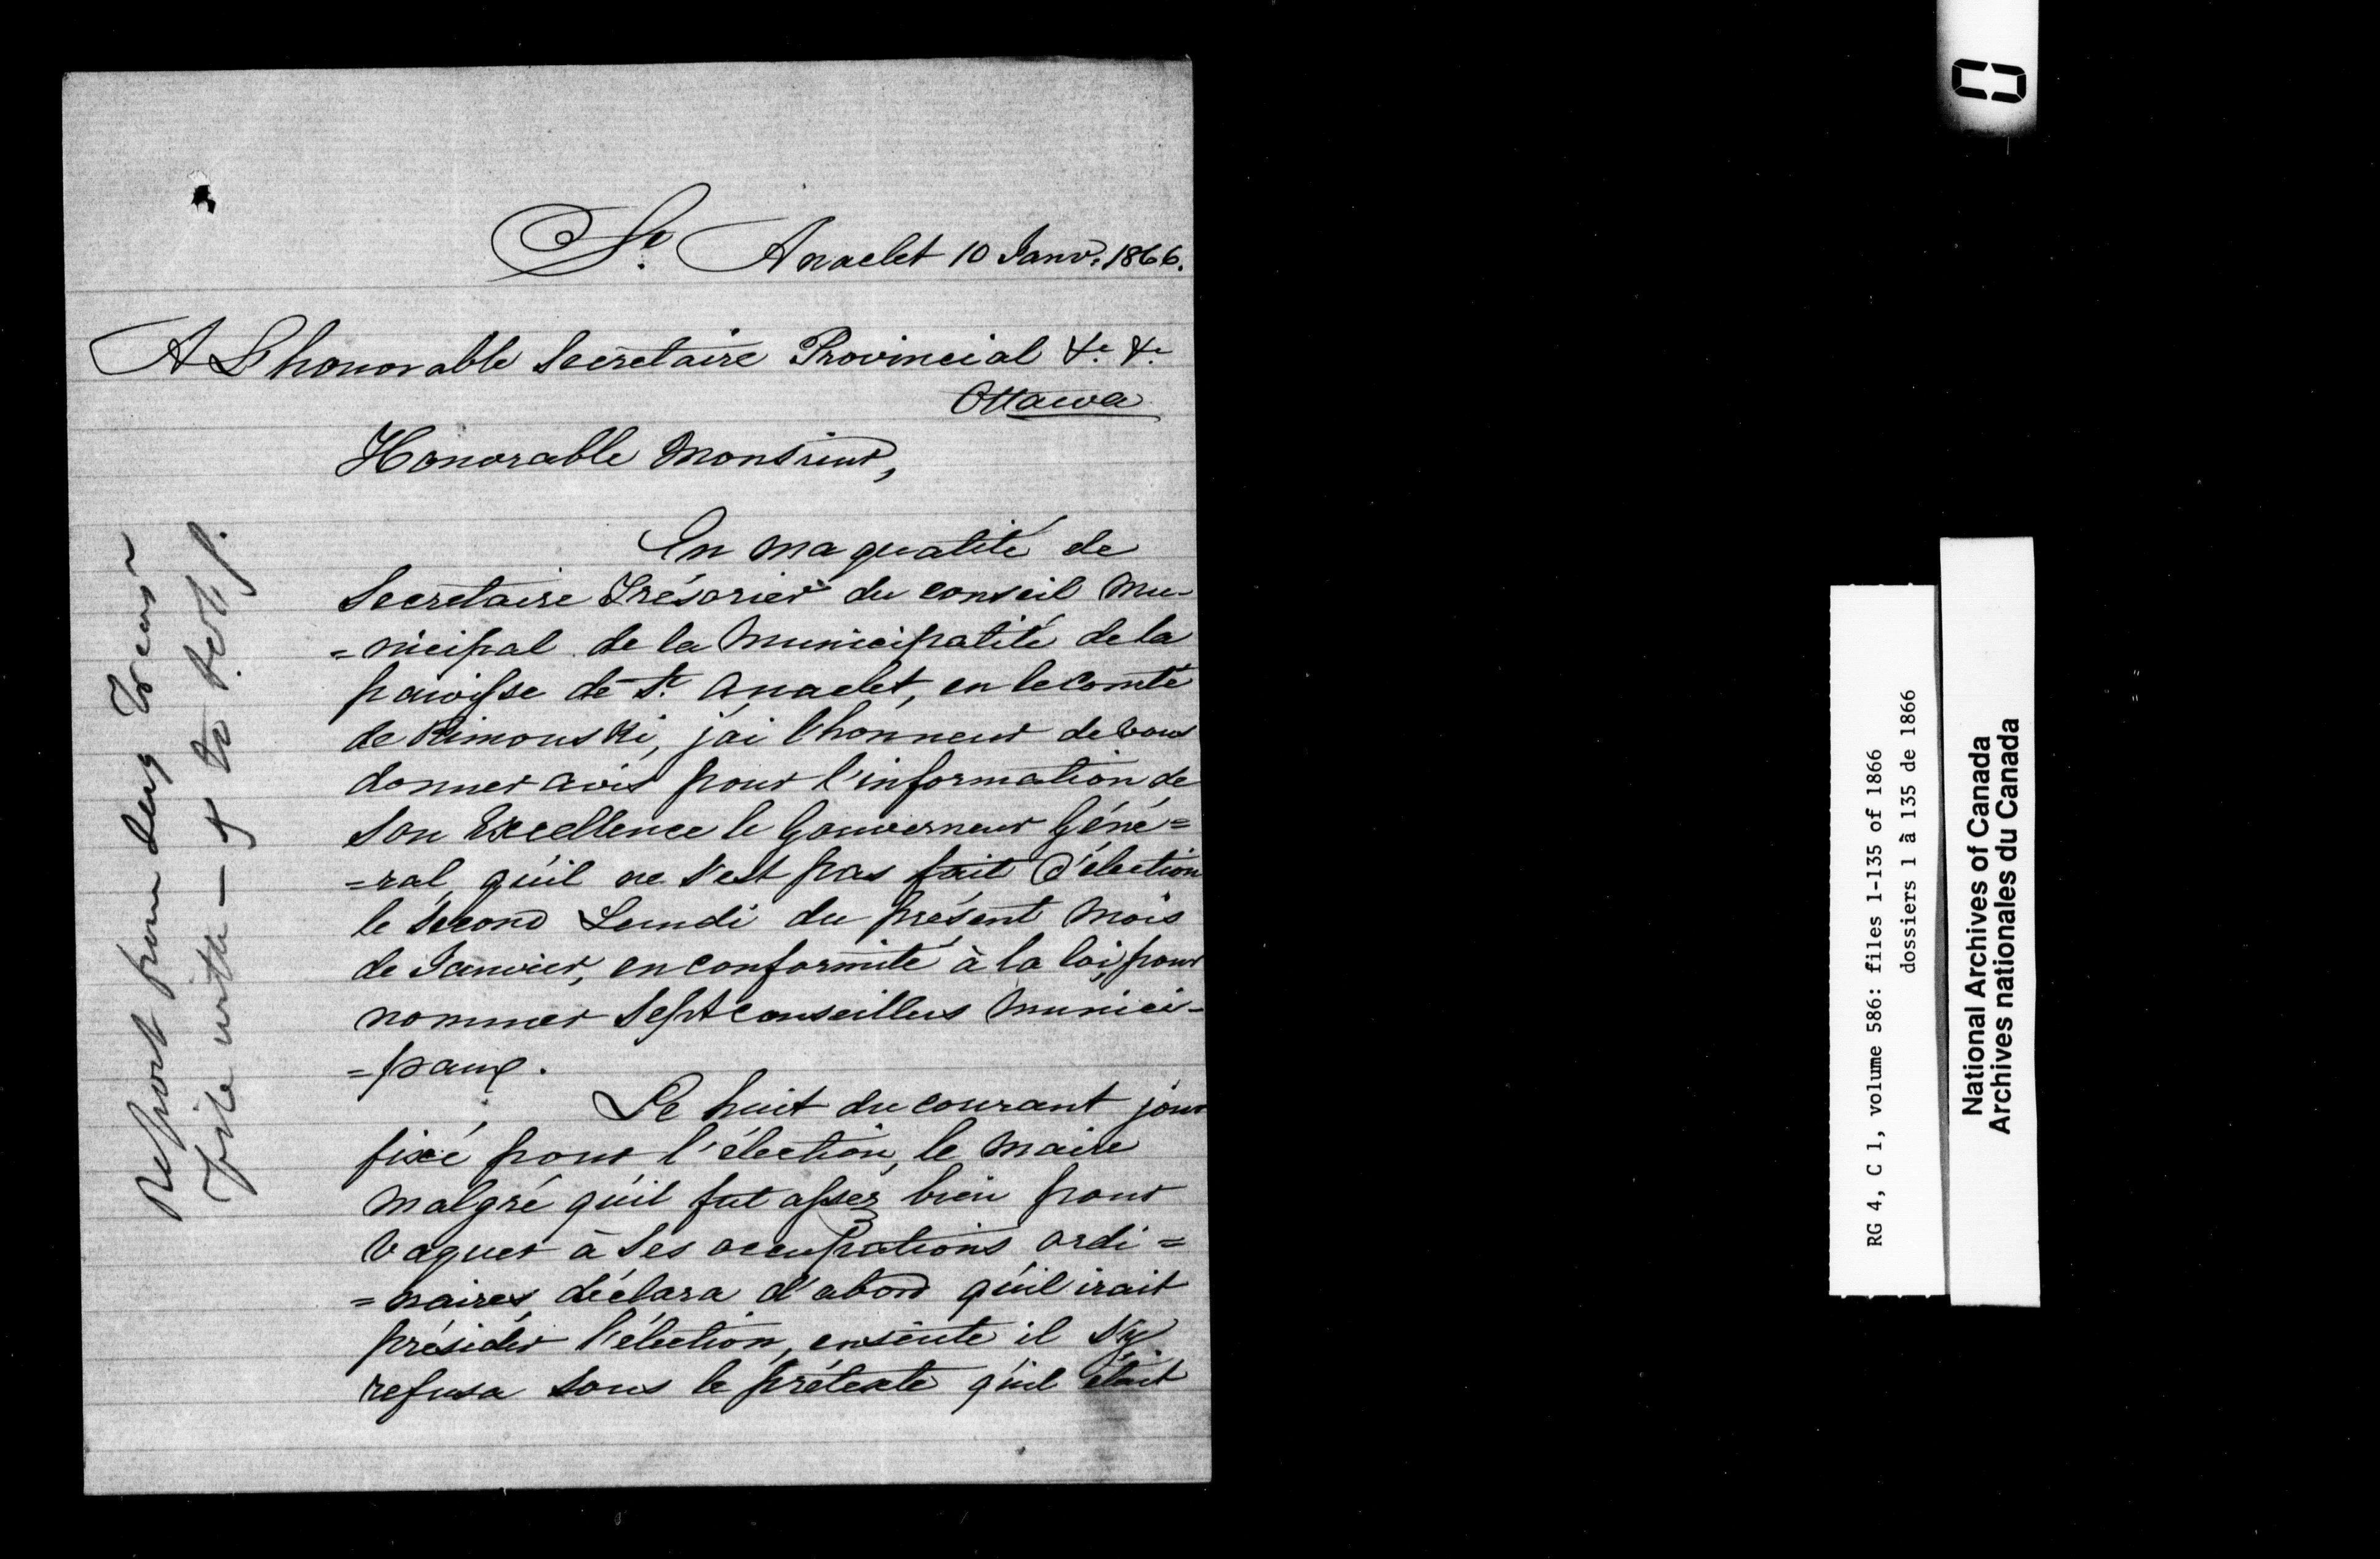 St. Anaclet 10 Janv. 1866.
A L'honorable Secretaire Provincial &c. &c.
Ottawa
Honorable Monsieur,
En ma qualité de
Secrétaire Trésorier du conseil Mu-
=nicipal de la Municipalité de la
paroisse de St. Anaclet, en le comté
de Rimouski, j'ai l'honneur de vous
donner avis pour l'information de
Son Excellence le Gouverneur Géné=
=ral, qu'il ne s'est pas fait d'élection
le second Lundi du présent mois
de Janvier, en conformité à la loi, pour
nommer Sept conseillers Munici-
=paux.
Le huit du courant jour
fixé pour l'élection, le Maire
Malgré qu'il fut assez bien pour
vaquer à ses occupations ordi=
=naires, déclara d'abord qu'il irait
présider l'élection, ensuite il s'y
refusa sous le prétexte qu'il était
Report from
File with
RG 4, C 1, volume 586: files 1-135 of 1866
dossiers 1 à 135 de 1866
National Archives of Canada
Archives nationales du Canada